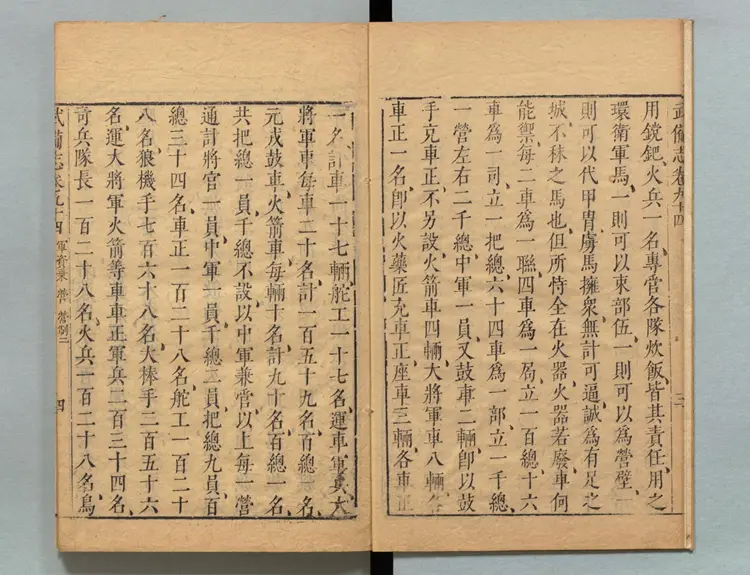 武備志卷九十四
三
用鏡鈀火兵一名專管各隊炊飯皆其責任用之
環衛軍馬一則可以束部伍一則可以為營壁一
則可以代甲胄虜馬擁衆無計可逼誠為有足之
城不秣之馬也但所恃全在火器火器若廢車何
能禦每二車為一聯四車為一局立一百總十六
車為一司立一把總六十四車為一部立一千總
一營左右二千總中軍一員又鼓車二輛卽以鼓
手充車正不另設火箭車四輛大將軍車八輛各
車正一名卽以火藥匠充車正座車三輛各車正
一名計車一十七輛舵工一十七名運車軍兵大
將軍車每車二十名計一百五十九名百總一名
元戎鼓車火箭車每輛十名計九十名百總一名
共把總一員千總不設以中軍兼管以上每一營
通計將官一員中軍一員千總二員把總九員百
總三十四名車正一百二十八名舵工一百二十
八名狼機手七百六十八名大棒手二百五十六
名運大將軍火箭等車車正軍兵二百三十四名
奇兵隊長一百二十八名火兵一百二十八名鳥
武備志卷九十四
軍資乘 營 營制二
四